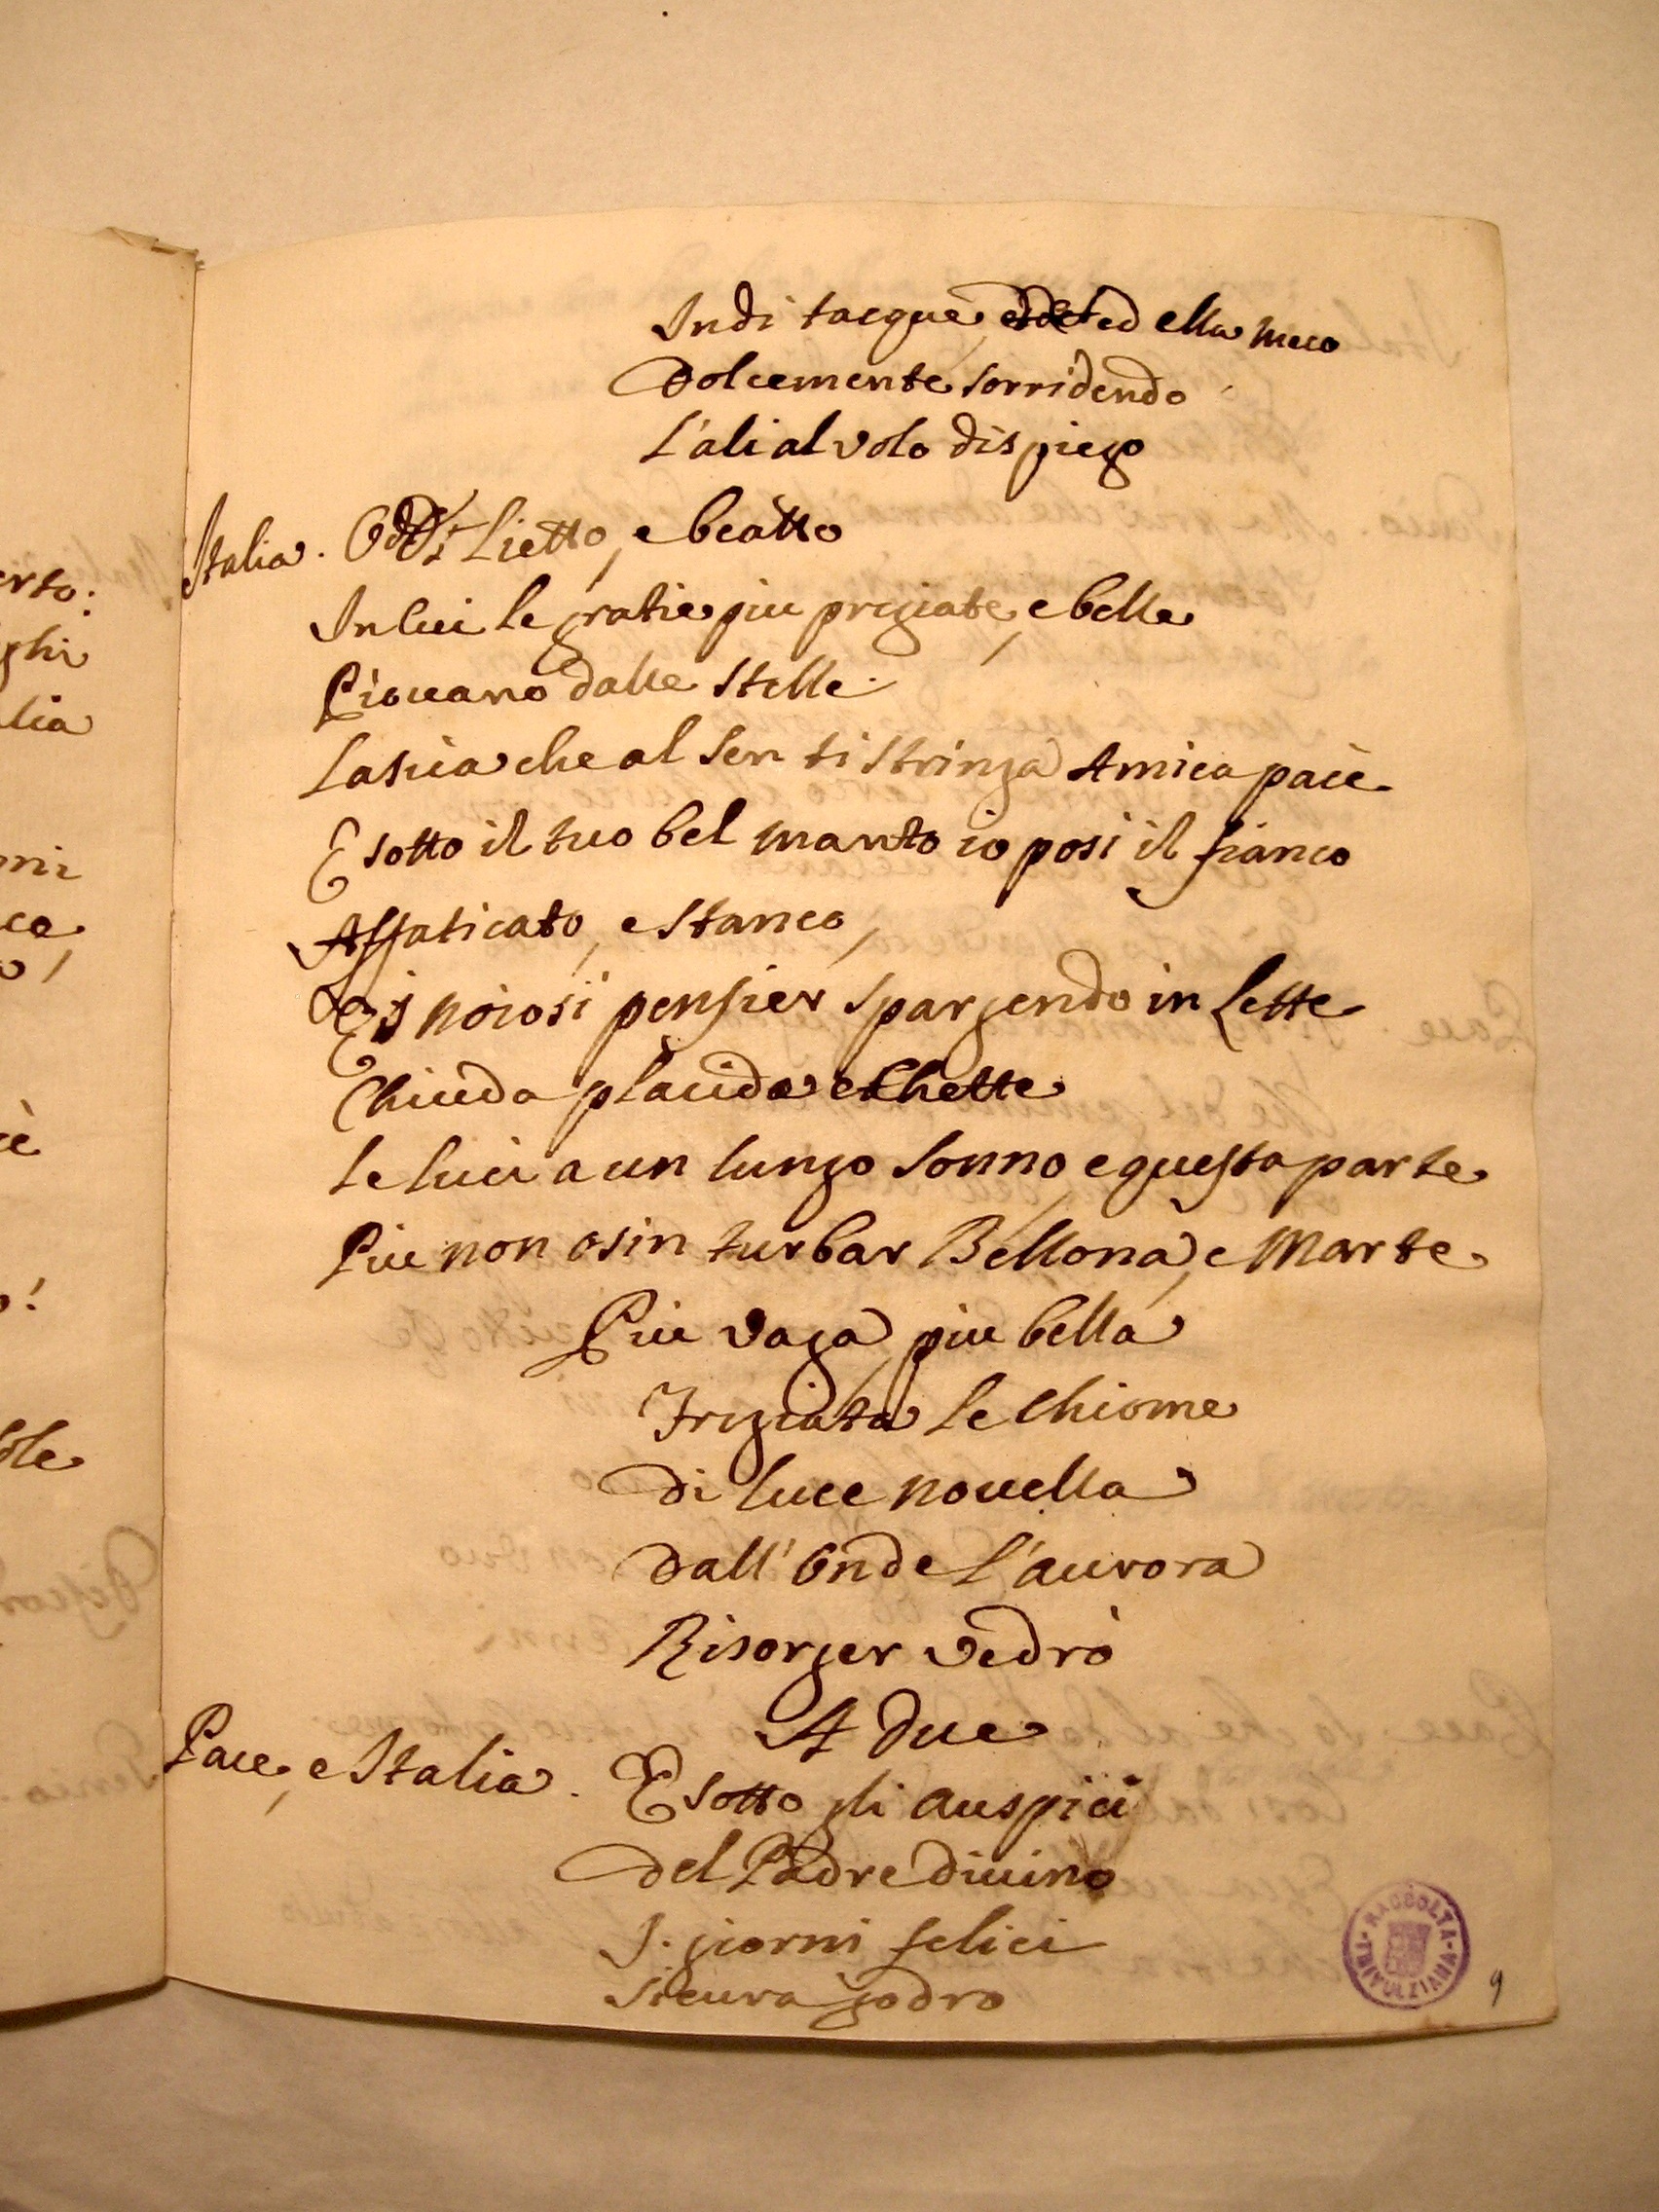 Indi tacque, ed ella meco
Dolcemente sorridendo
L'ali al volo dispiego
Italia. O Dì Lietto, e beatto
In cui le gratie piu pregiate, e belle
Piouano dalle Stelle.
Lascia che al sen ti stringa Amica pace
E sotto il tuo bel manto io posi il fianco
Affaticato, e Stanco,
E i noiosi pensier spargendo in Lette
Chiuda placida e chette
Le luci a un lungo sonno, e questa parte
Piu non osin turbar Bellona, e Marte
Piu vaga, piu bella
Fregiata le Chiome
di luce nouella
dall' onde l'aurora
Risorger vedrò
A due
Pace, e Italia. E sotto gli auspici
del Padre diuino
I. giorni felici
sicura godro
RACCOLTA TRIVULZIANA
9
erto:
ghi
lia
ni
ce
o,
è
o!
ole